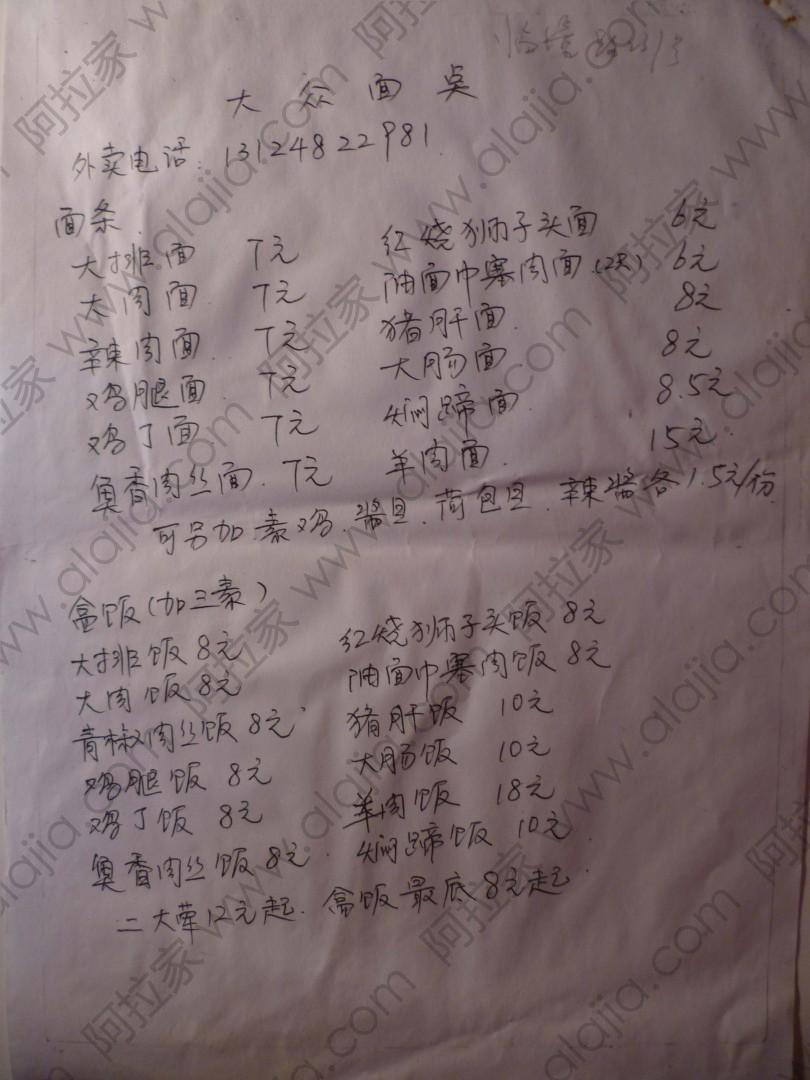 大众面点
外卖电话：13124822981
面条
大排面 7元 红烧狮子头面 6元
大肉面 7元 油面巾塞肉面(2只) 6元
辣肉面 7元 猪肝面 8元
鸡腿面 7元 大肠面 8元
鸡丁面 7元 焖蹄面 8.5元
鱼香肉丝面 7元 羊肉面 15元
可另加 素鸡.酱旦.荷包旦.辣酱各1.5元/份
盒饭(加三素)
大排饭 8元 红烧狮子头饭 8元
大肉饭 8元 油面巾塞肉饭 8元
青椒肉丝饭 8元 猪肝饭 10元
鸡腿饭 8元 大肠饭 10元
鸡丁饭 8元 羊肉饭 18元
鱼香肉丝饭 8元 焖蹄饭 10元
二大荤12元起.盒饭最底8元起
阿拉家 www.alajia.com